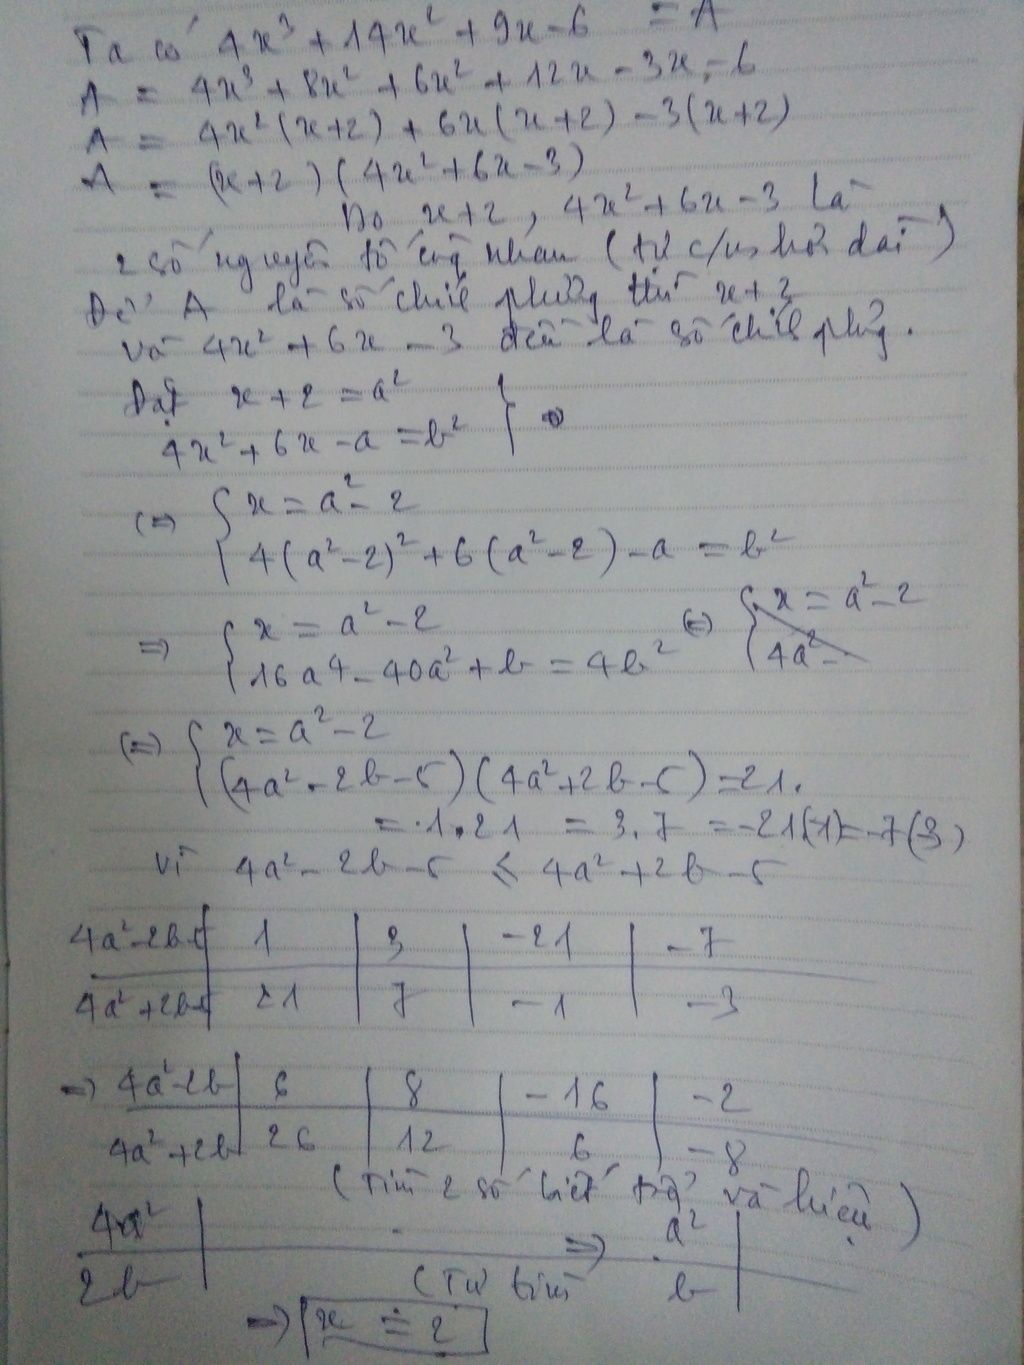 Ta có 4x³ + 14x² + 9x - 6 = A
A = 4x³ + 8x² + 6x² + 12x - 3x - 6
A = 4x²(x+2) + 6x(x+2) - 3(x+2)
A = (x+2)(4x² + 6x - 3)
Do x+2, 4x² + 6x - 3 là
2 số nguyên tố cùng nhau (tự c/m hơi dài)
Để A là số chính phương thì x+2
và 4x² + 6x - 3 đều là số chính phương.
Đặt x + 2 = a²
4x² + 6x - a = b² } =>
(=) { x = a² - 2
4(a² - 2)² + 6(a² - 2) - a = b²
=> { x = a² - 2 (=) { x = a² - 2
16a4 - 40a² + b = 4b² 4a² -
(=) { x = a² - 2
(4a² - 2b - 5)(4a² + 2b - 5) = 21.
= 1.21 = 3.7 = -21(-1) = -7(3)
Vì 4a² - 2b - 5 ≤ 4a² + 2b - 5
4a² - 2b - 5 | 1 | 3 | -21 | -7
4a² + 2b - 5 | 21 | 7 | -1 | -3
=> 4a² - 2b | 6 | 8 | -16 | -2
4a² + 2b | 26 | 12 | 6 | -8
(Tìm 2 số biết tổng và hiệu)
4a² | => a² |
2b | (Tự tìm b |
=> x = 2